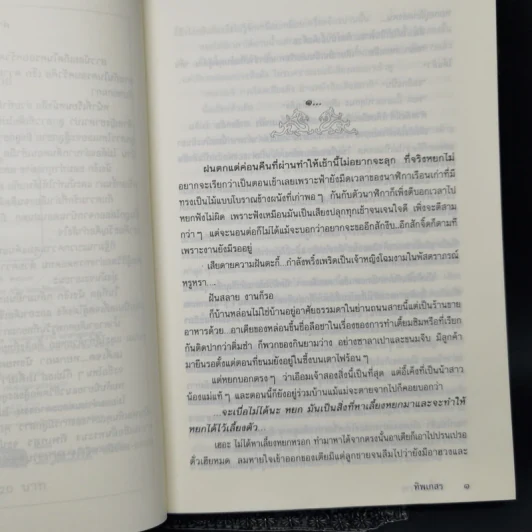 ๑...
ฝนตกแต่ค่อนคืนที่ผ่านทำให้เช้านี้ไม่อยากจะลุก ที่จริงหยกไม่
อยากจะเรียกว่าเป็นตอนเช้าเลยเพราะฟ้ายังมืดเวลาของนาฬิกาเรือนเก่าที่มี
ทรงเป็นไม้แบบโบราณข้างผนังที่เก่าพอๆ กันกับตัวนาฬิกาก็เพิ่งตีบอกเวลาไป
หยกฟังไม่ผิด เพราะฟังเหมือนมันเป็นเสียงปลุกทุกเช้าจนเจนใจดี เพิ่งจะตีสาม
กว่าๆ แต่จะนอนต่อก็ไม่ได้แม้จะบอกว่าอยากจะขออีกสักงีบ..อีกสักจิ๊ดก็ตามที
เพราะงานยังมีรออยู่
เสียดายความฝันตะกี้...กำลังพริ้งเพริดเป็นเจ้าหญิงโฉมงามในพัสตราภรณ์
หรูหรา....
ฝันสลาย งานก็รอ
ก็บ้านหล่อนไม่ใช่บ้านอยู่อาศัยธรรมดาในย่านถนนสายนี้แต่เป็นร้านขาย
อาหารด้วย...อาเตียของหล่อนขึ้นชื่อลือชาในเรื่องของการทำเตี้ยมซิมหรือที่เรียก
กันติดปากว่าติ่มซำ ก็พวกของกินยามว่าง อย่างซาลาเปาและขนมจีบ มีลูกค้า
มายืนรอตั้งแต่ตอนที่ขนมยังอยู่ในซึ้งบนเตาไฟร้อนๆ
แต่หยกบอกตรงๆ ว่าเอือมเจ้าสองสิ่งนี้เป็นที่สุด แต่อี๊เค็งที่เป็นน้าสาว
น้องแม่แท้ๆ และตอนนี้ก็ยังอยู่ร่วมบ้านแม้แม่จะตายจากไปก็คอยบอกว่า
จะเบื่อไม่ได้นะ หยก มันเป็นสิ่งที่หาเลี้ยงหยกมาและจะทำให้
หยกได้ไว้เลี้ยงตัว...
เฮอะ ไม่ได้หาเลี้ยงหยกหรอก ทำมาหาได้จากตรงนั้นอาเตียก็เอาไปปรนเปรอ
ตั่วเฮียหมด ลมหายใจเข้าออกของเตียมีแต่ลูกชายจนลืมไปว่ายังมีอาฮวงและ
ทิพเกสร ๑